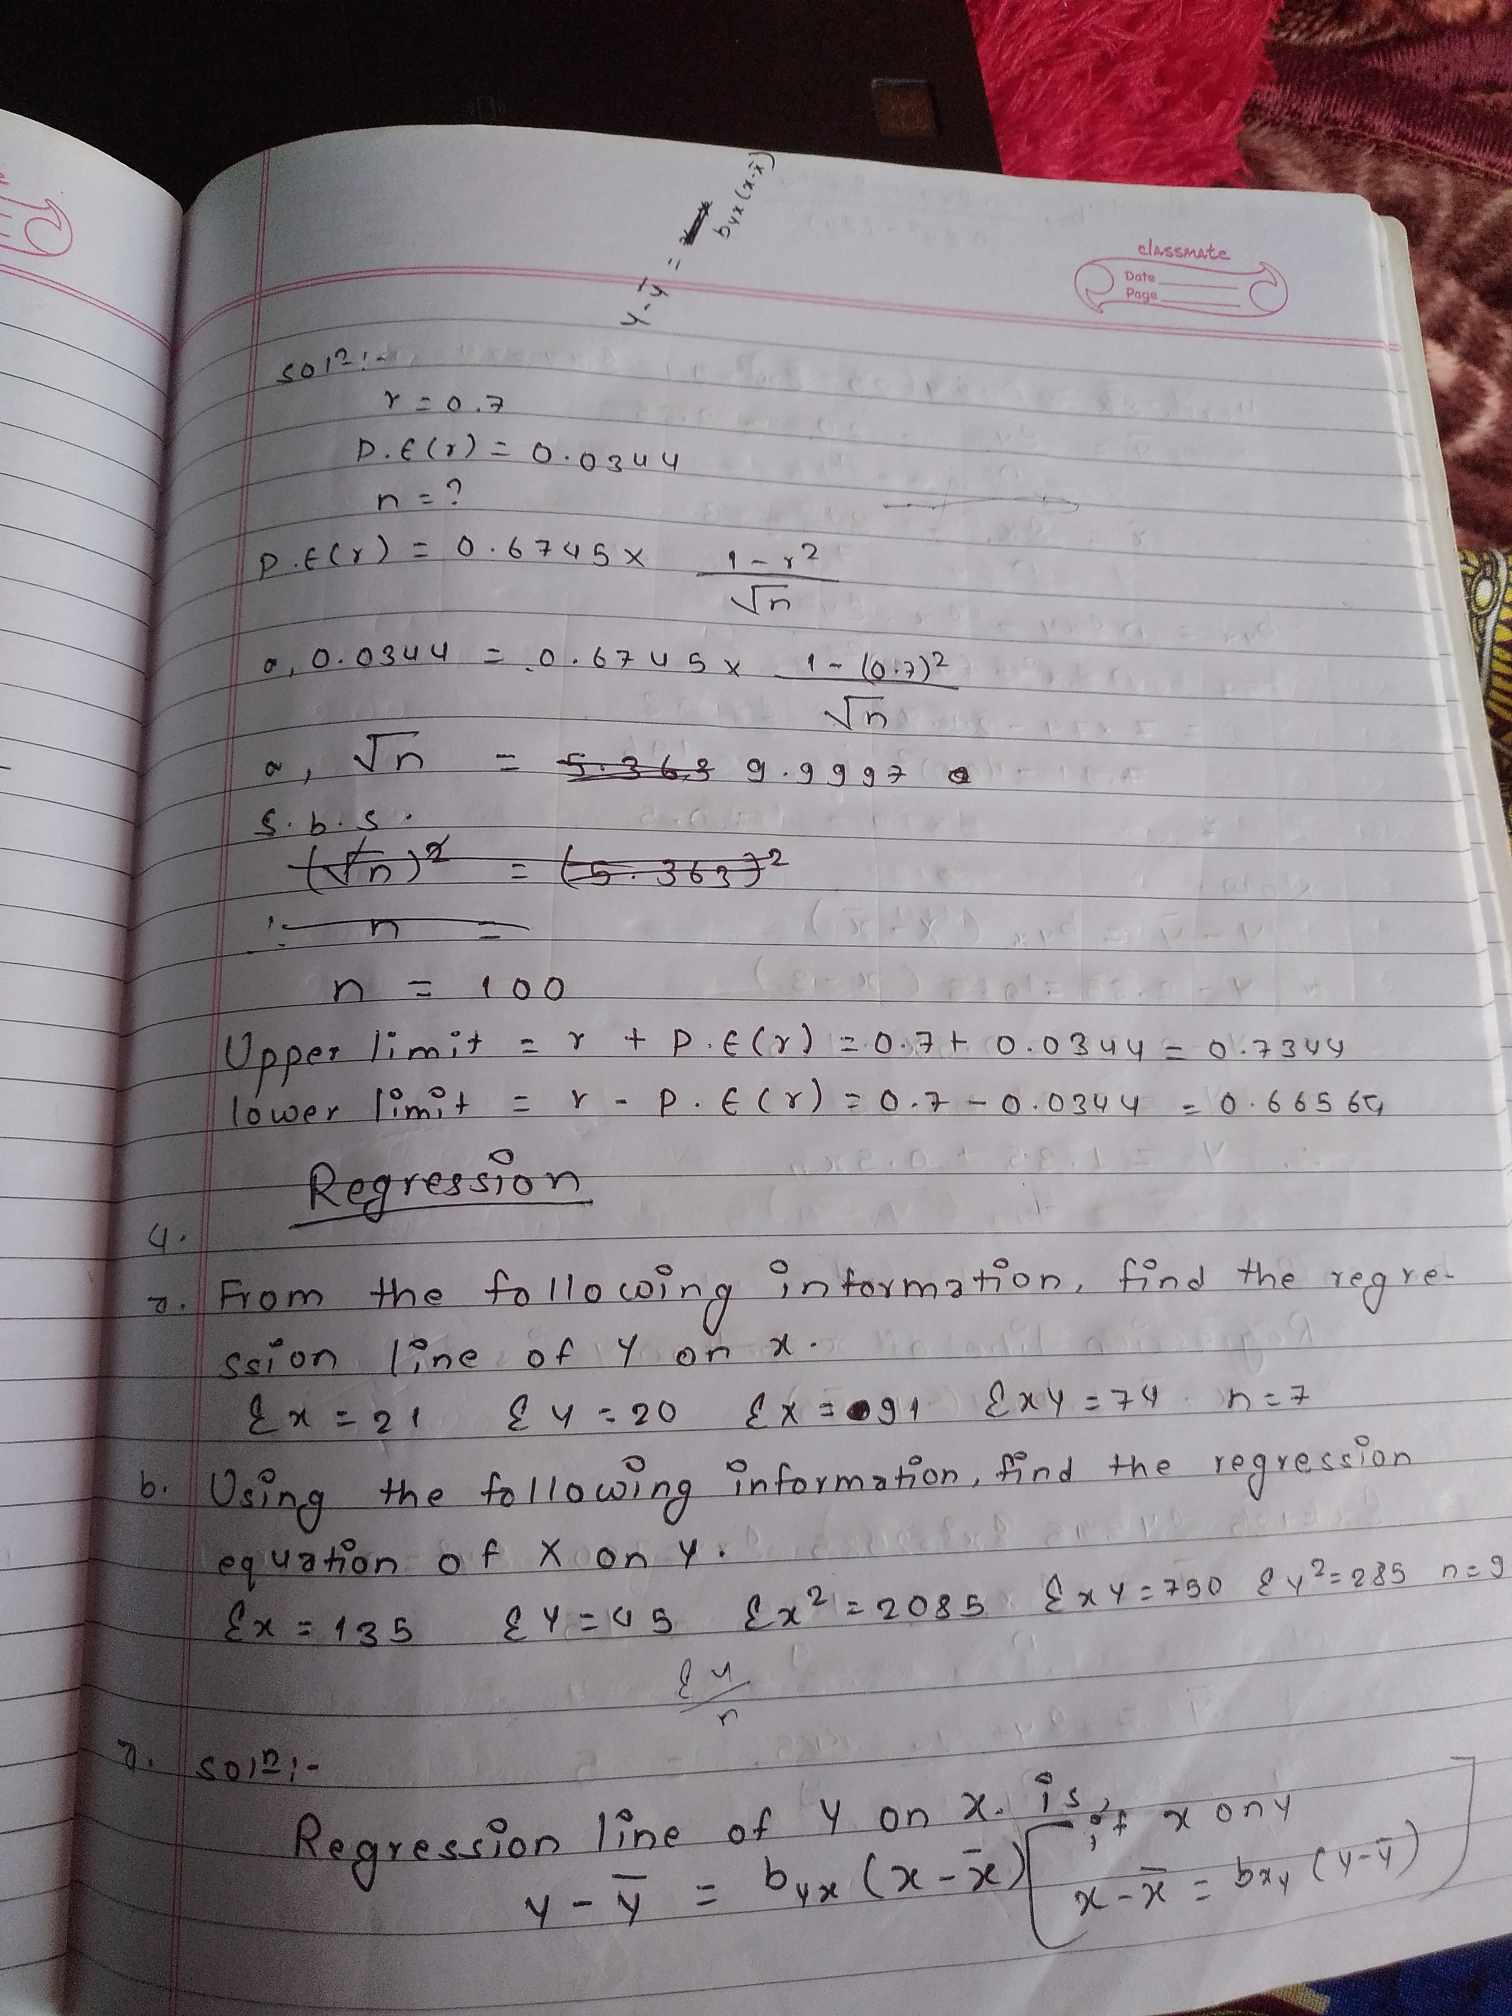 y - ȳ = byx (x-x̄)
classmate
Date
Page
Solⁿ:-
r = 0.7
P.E(r) = 0.0344
n = ?
P.E(r) = 0.6745 x (1 - r²)/√n
a, 0.0344 = 0.6745 x (1 - (0.7)²)/√n
a, √n = 5.363 9.9997
S.b.s.
(√n)² = (5.363)²
∴ n =
n = 100
Upper limit = r + P.E(r) = 0.7 + 0.0344 = 0.7344
lower limit = r - P.E(r) = 0.7 - 0.0344 = 0.6656
Regression
4.
a. From the following information, find the regre-
ssion line of y on x.
Σx = 21 Σy = 20 Σx = 91 Σxy = 74 n = 7
b. Using the following information, find the regression
equation of X on y.
Σx = 135 Σy = 45 Σx² = 2085 Σxy = 750 Σy² = 285 n = 9
Σy/n
a. Solⁿ:-
Regression line of y on x. is, if x on y
y - ȳ = byx (x - x̄) [x - x̄ = bxy (y - ȳ)]